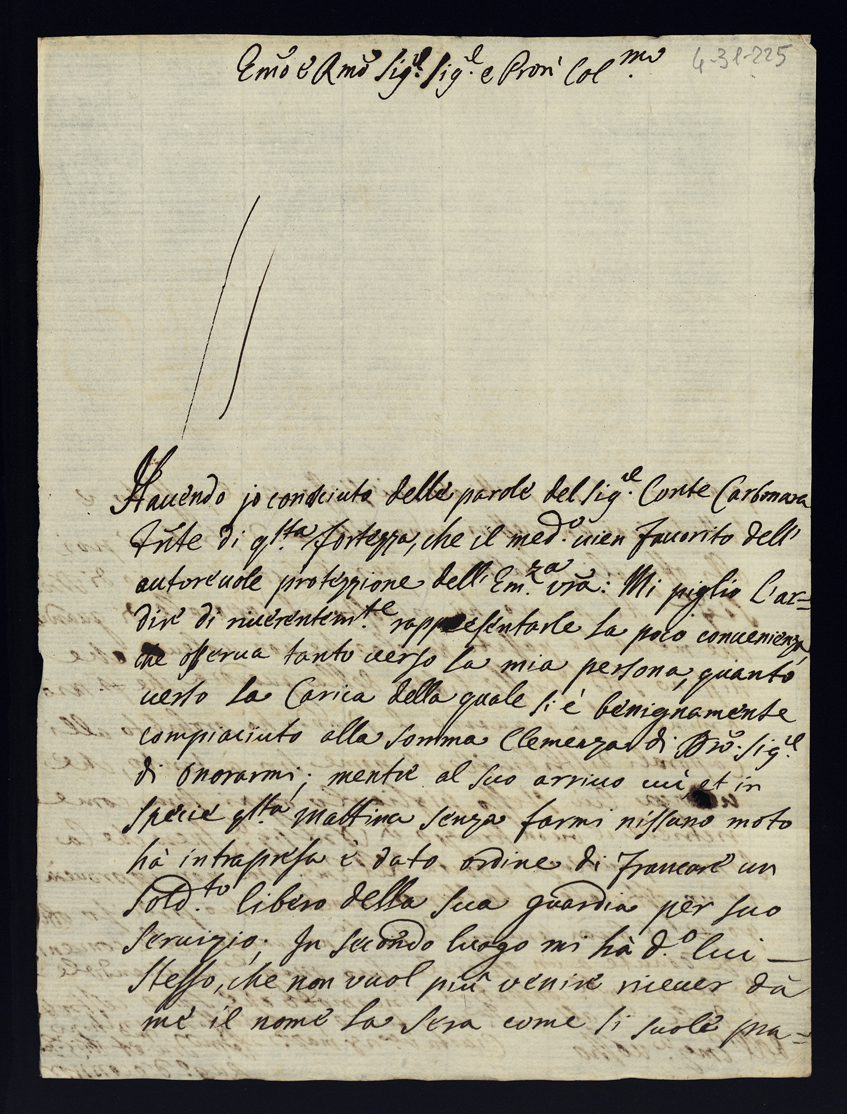 Emo e Rmo Sig.r Sig.r e Pron Col.mo
4-31-225
Havendo jo conosciuto delle parole del Sig.r Conte Carbonara
Tnte di q.sta fortezza, che il med.o vien favorito dell'
autorevole protezzione dell'Em.za vra: Mi piglio l'ar=
dire di riverentem.te rappresentarle la poco convenienza,
che osserva tanto verso la mia persona, quanto
verso la Carica della quale si è benignamente
compiaciuto alla somma Clemenza di Sig.r
di onorarmi; mentre al suo arrivo et in
specie q.sta mattina senza farmi nissuno moto
hà intrapresa è dato ordine di francare un
Sold.to libero della sua guardia per suo
servizio. In secondo luogo mi hà d.o lui
stesso, che non vuol più venire riever dà
mè il nome la sera come si suole pra=